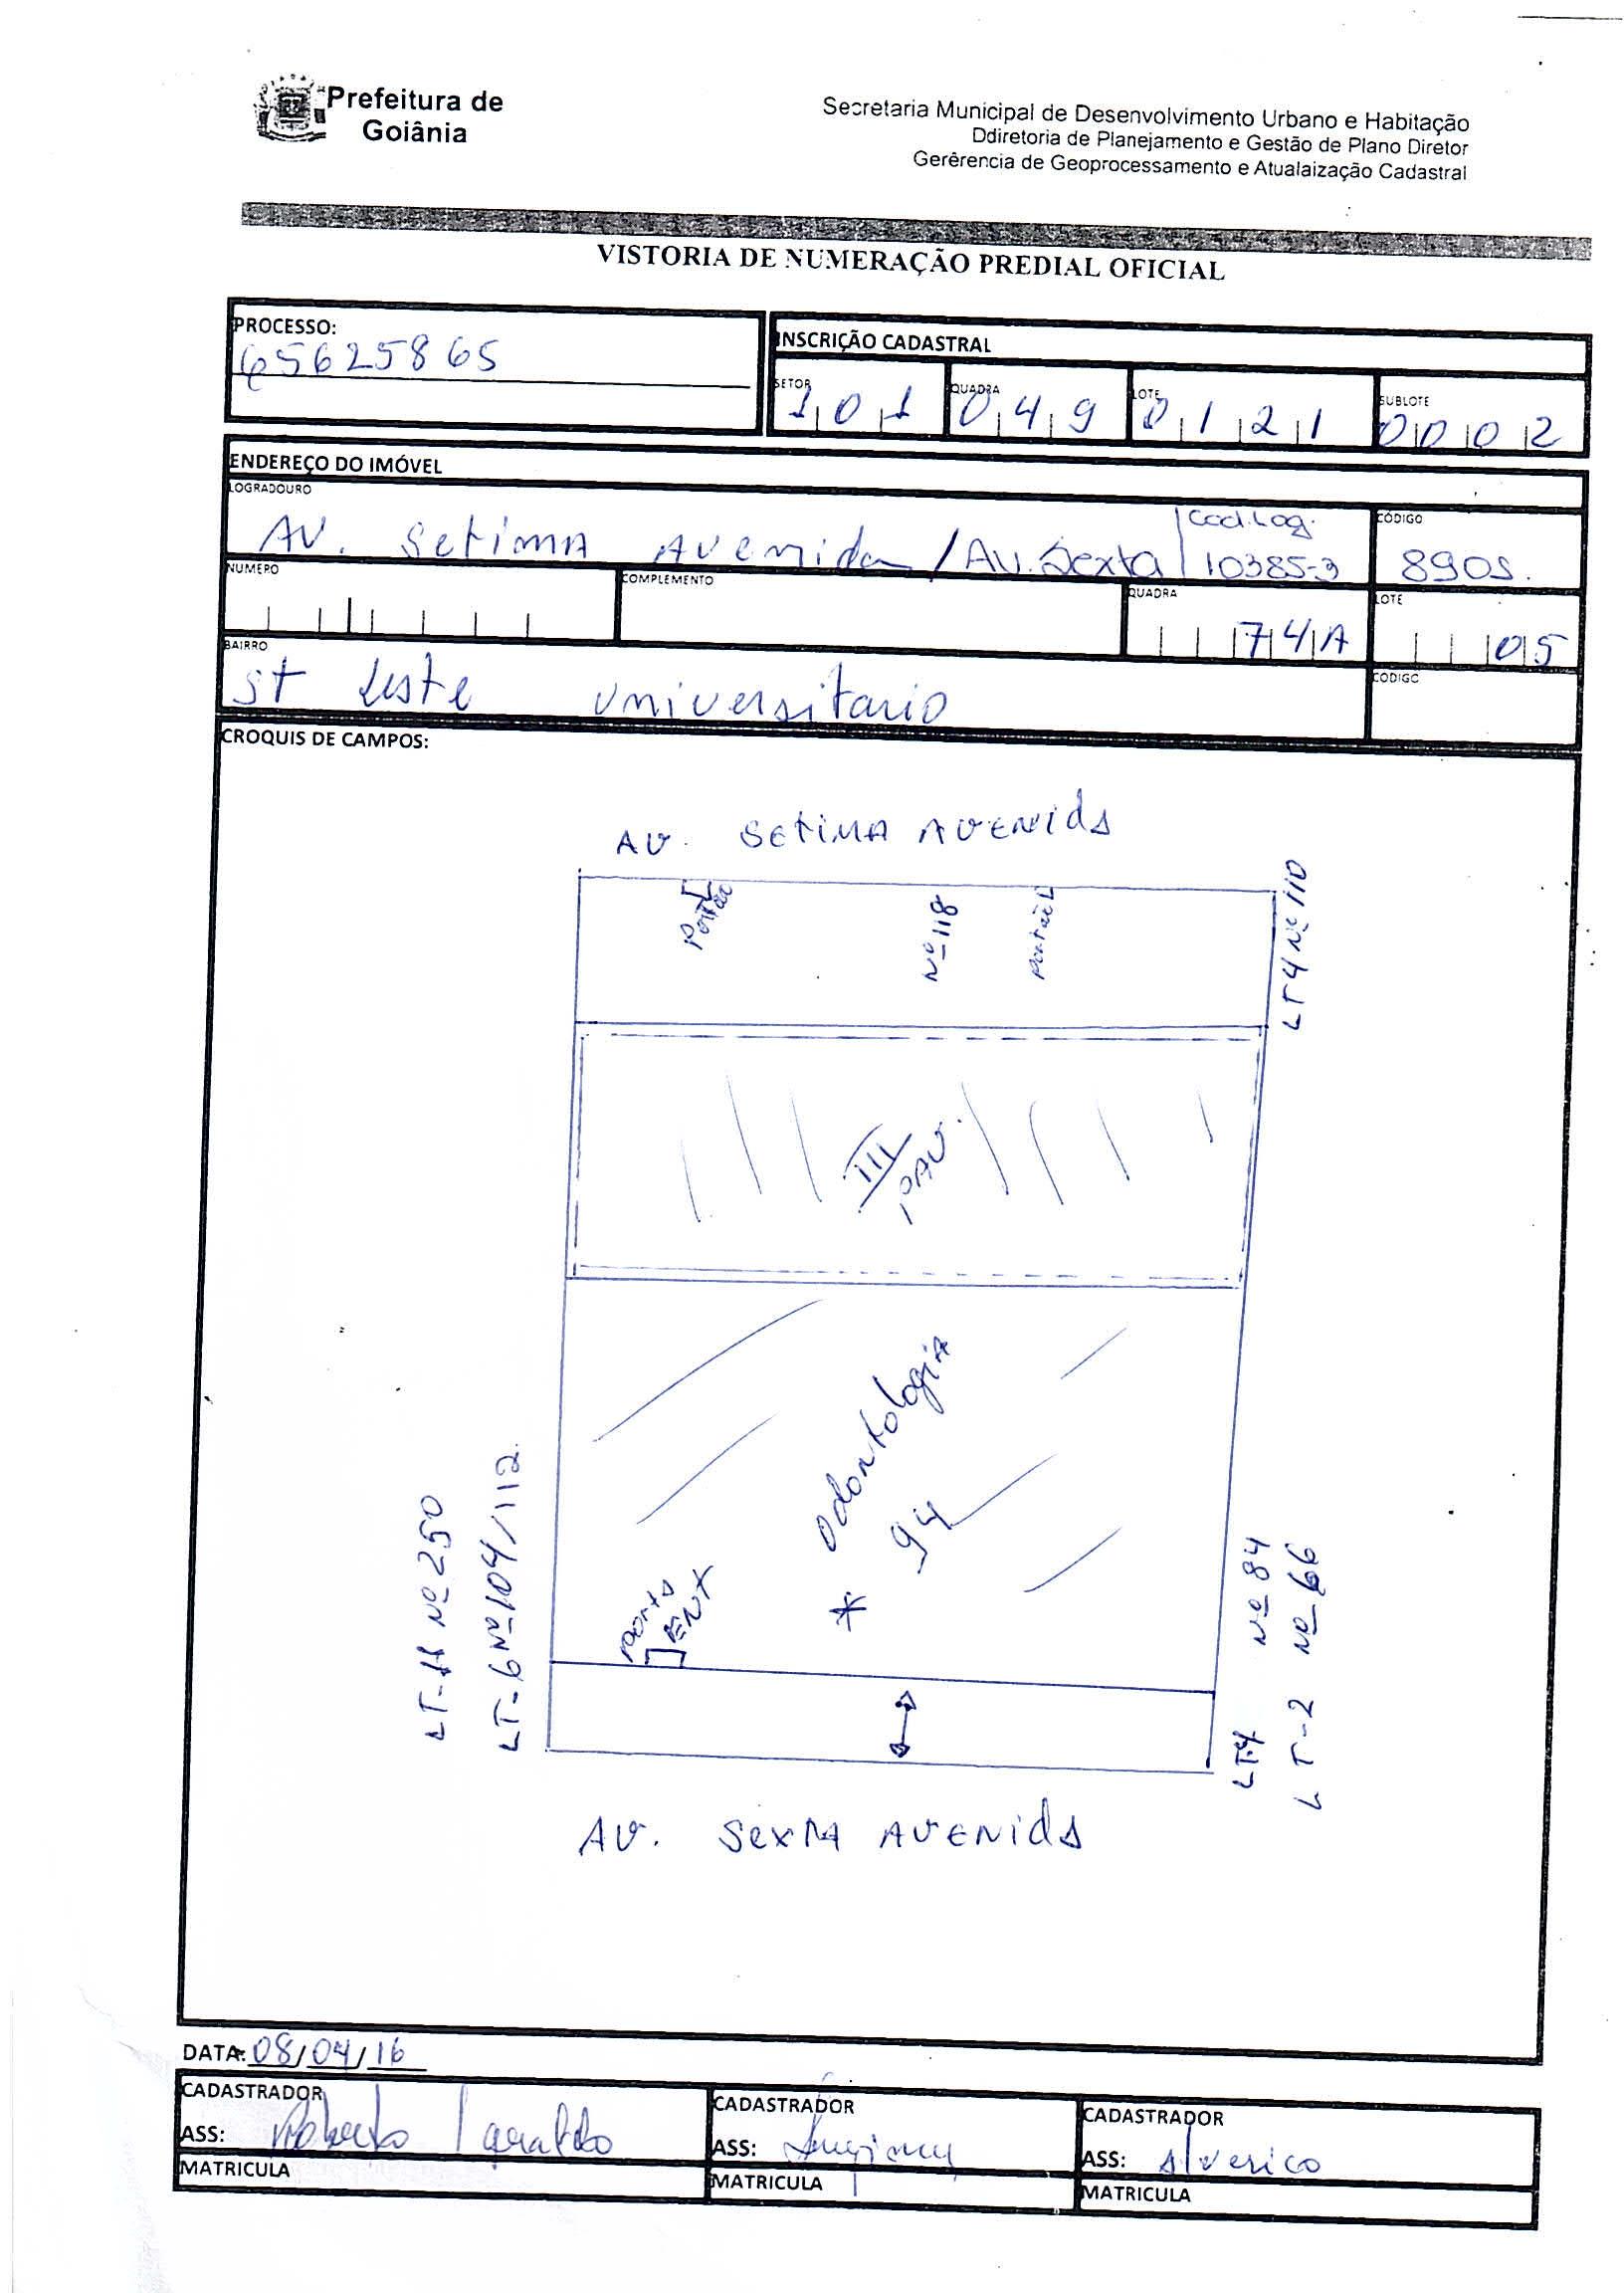 Prefeitura de
Goiânia
Secretaria Municipal de Desenvolvimento Urbano e Habitação
Ddiretoria de Planejamento e Gestão de Plano Diretor
Gerêrencia de Geoprocessamento e Atualaização Cadastral
VISTORIA DE NUMERAÇÃO PREDIAL OFICIAL
PROCESSO:
65625865
INSCRIÇÃO CADASTRAL
SETOR QUADRA LOTE SUBLOTE
101 049 0121 0002
ENDEREÇO DO IMÓVEL
LOGRADOURO CÓDIGO
AV. Setima Avenida / AV. Sexta Cod. Log. 10385-3 8905.
NUMERO COMPLEMENTO QUADRA LOTE
74A 05
BAIRRO CODIGO
St Leste Universitario
CROQUIS DE CAMPOS:
AV. SETIMA AVENIDA
Portão
Nº 118
Portão
LT 4 Nº 110
III PAV.
Odontologia
94
Porta
ENT
LT-11 Nº 250
LT-6 Nº 104/112
LT-4 Nº 84
LT-2 Nº 66
AV. SEXTA AVENIDA
DATA: 08/04/16
CADASTRADOR CADASTRADOR CADASTRADOR
ASS: Roberto Geraldo ASS: ASS: Alverico
MATRICULA MATRICULA MATRICULA